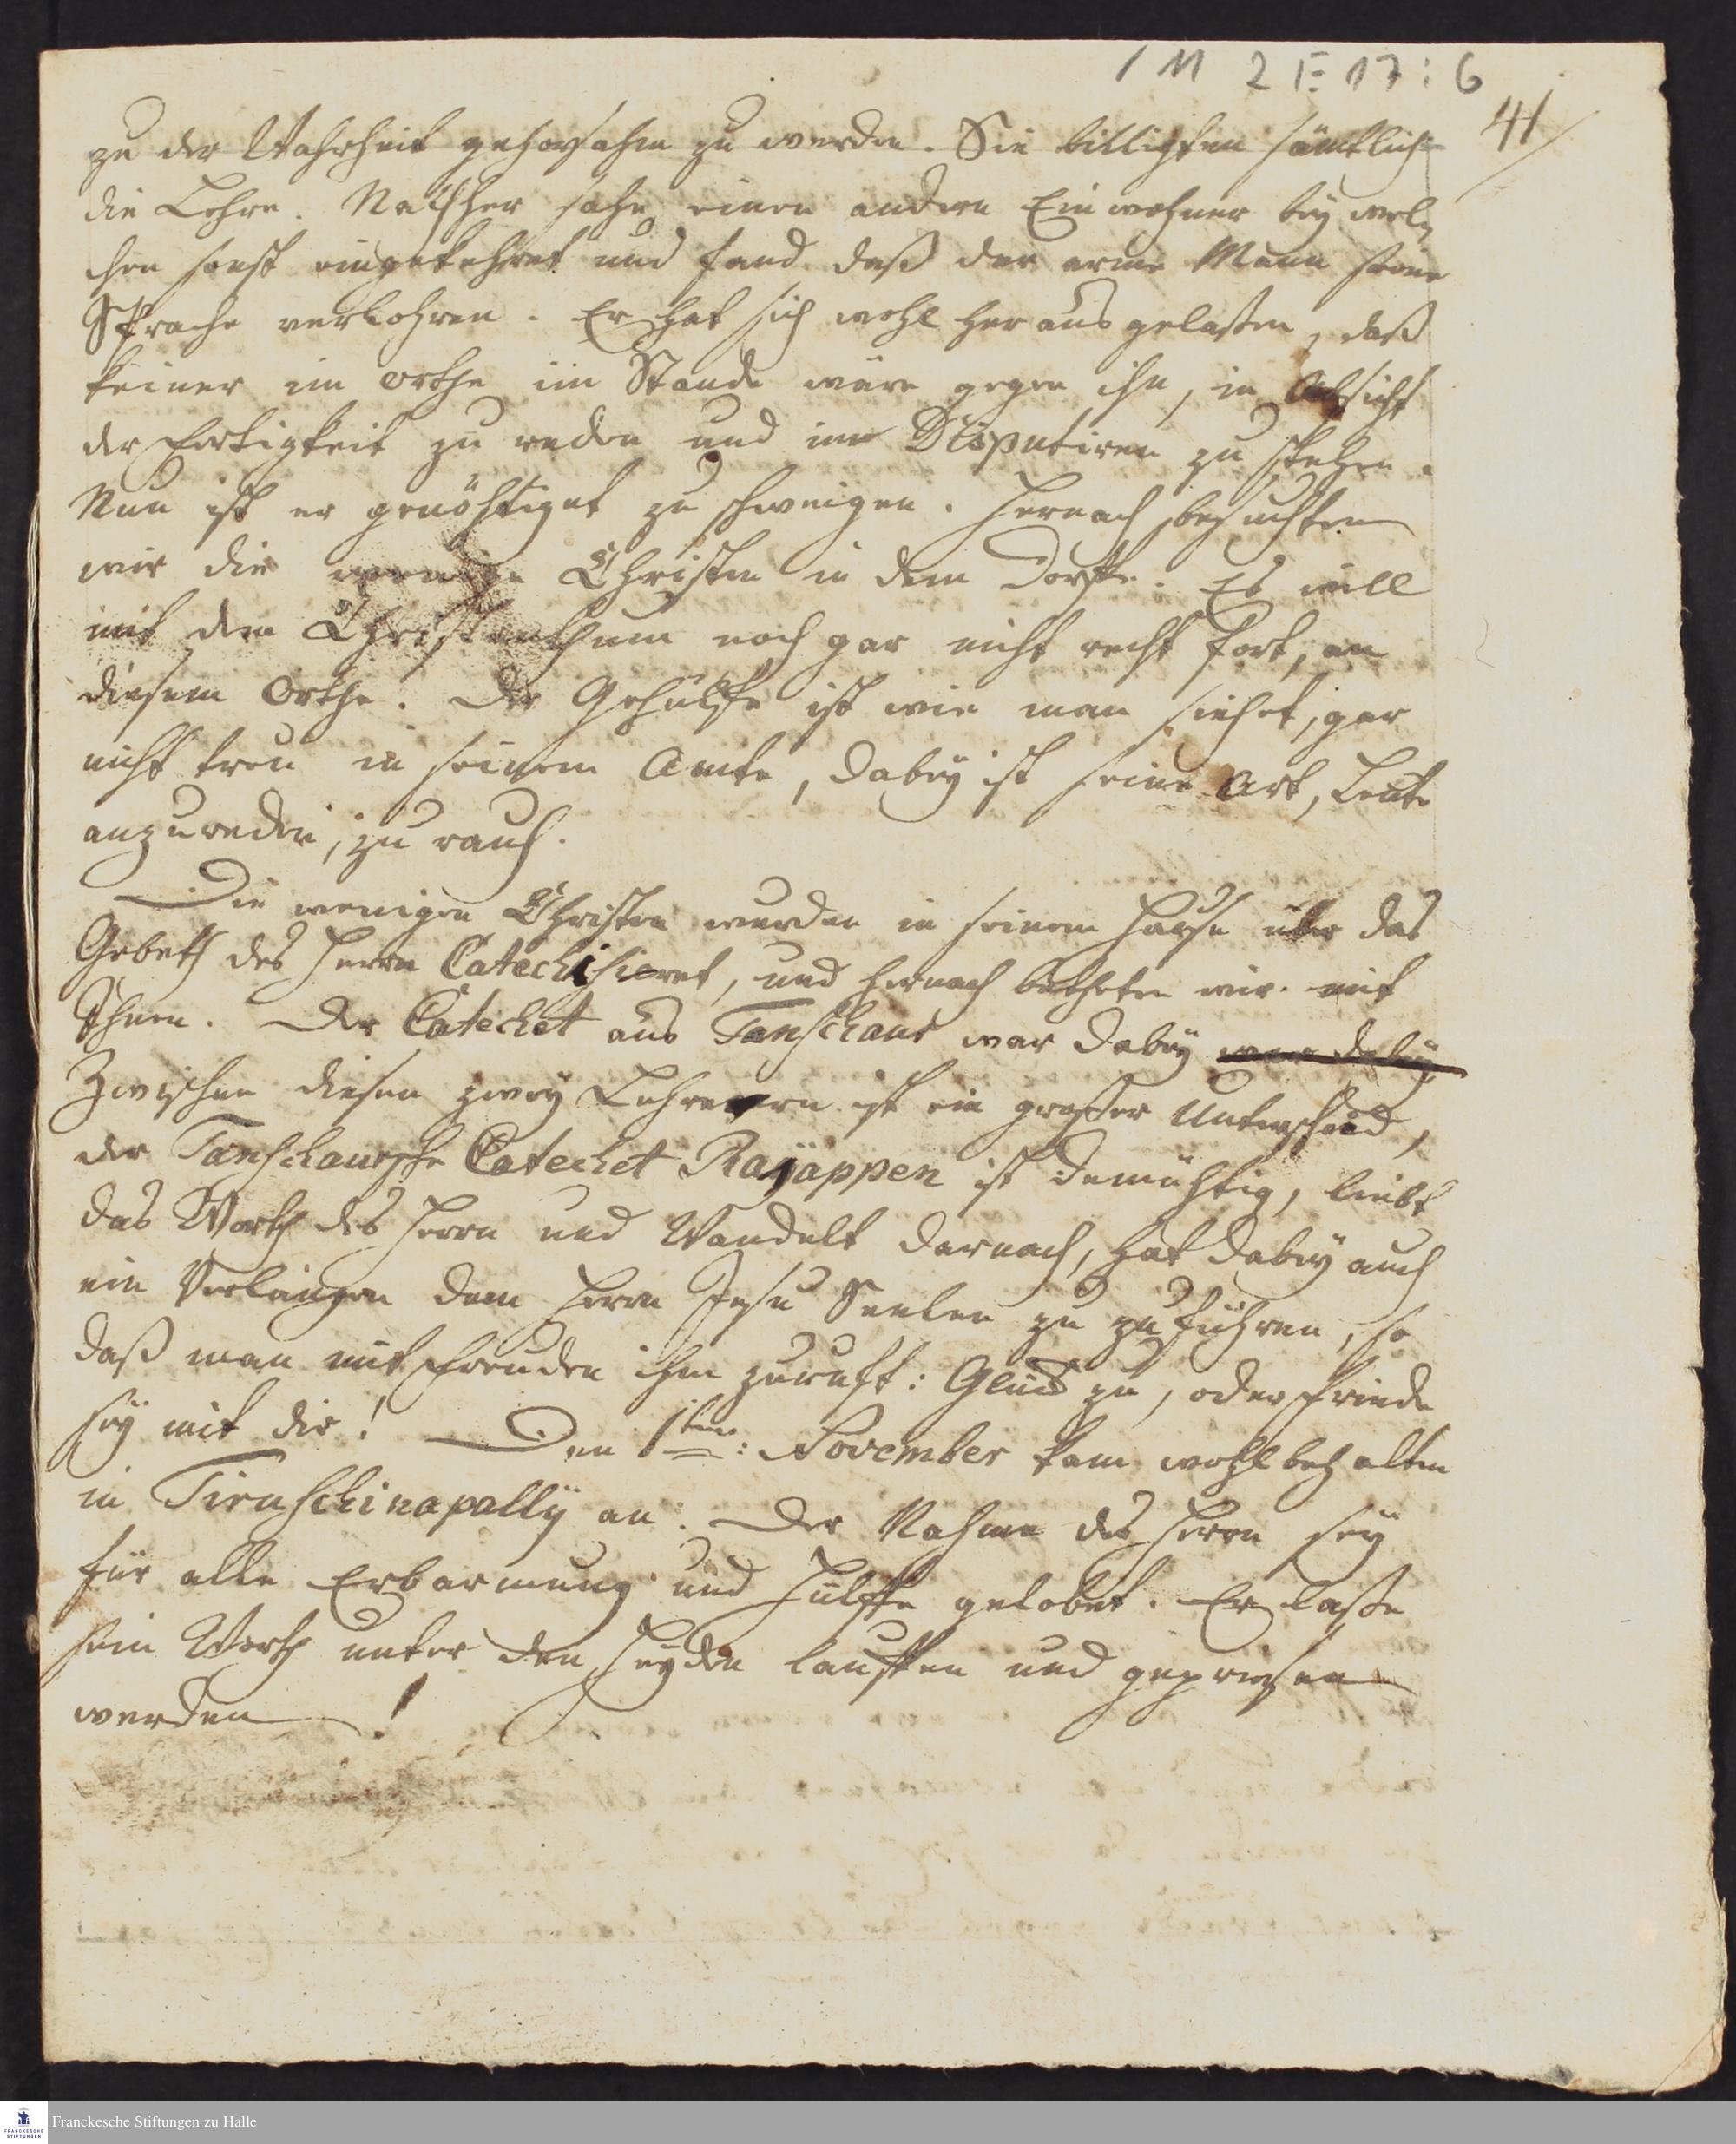 1 M 2 I: 17 : 6
41
zu der Wahrheit gehorsahm zu werden. Sie billigten sämtlich
die Lehre. Nachher sahe einen andern Einwohner bey wel-
chen sonst eingekehret und fand daß der arme Mann seine
Sprache verlohren. Er hat sich wohl heraus gelaßen, daß
keiner im Orthe im Stande wäre gegen ihn, in Absicht
der Fertigkeit zu reden und im Disputiren zu stehen.
Nun ist er genöhtiget zu schweigen. Hernach besuchten
wir die wenige Christen in dem Dorffe. Es will
mit dem Christenthum noch gar nicht recht fort, an
diesem Orthe. Der Gehülffe ist wie man siehet, gar
nicht treu in seinem Amte, dabey ist seine Art, Leute
anzureden, zu rauh.
Die wenigen Christen wurden in seinem Hause über das
Gebeth des Herrn Catechisieret, und hernach betheten wir mit
Ihnen. Der Catechet aus Tanschaur war dabey war dabey
Zwischen diesen zwey Lehrern ist ein großer Unterscheid,
der Tanschaursche Catechet Rayappen ist demühtig, liebt
das Worth des Herrn und Wandelt darnach, hat dabey auch
ein Verlangen dem Herrn Jesu Seelen zu zuführen, so
daß man mit Freuden ihm zuruft: Glück zu, oder Friede
sey mit dir! Den 1ten: November kam wohlbehalten
in Tirutschinapally an. Der Nahme des Herrn sey
für alle Erbarmung und Hülffe gelobet. Er laße
sein Worth unter den Heyden lauffen und gepriesen
werden!
Franckesche Stiftungen zu Halle
FRANCKESCHE
STIFTUNGEN